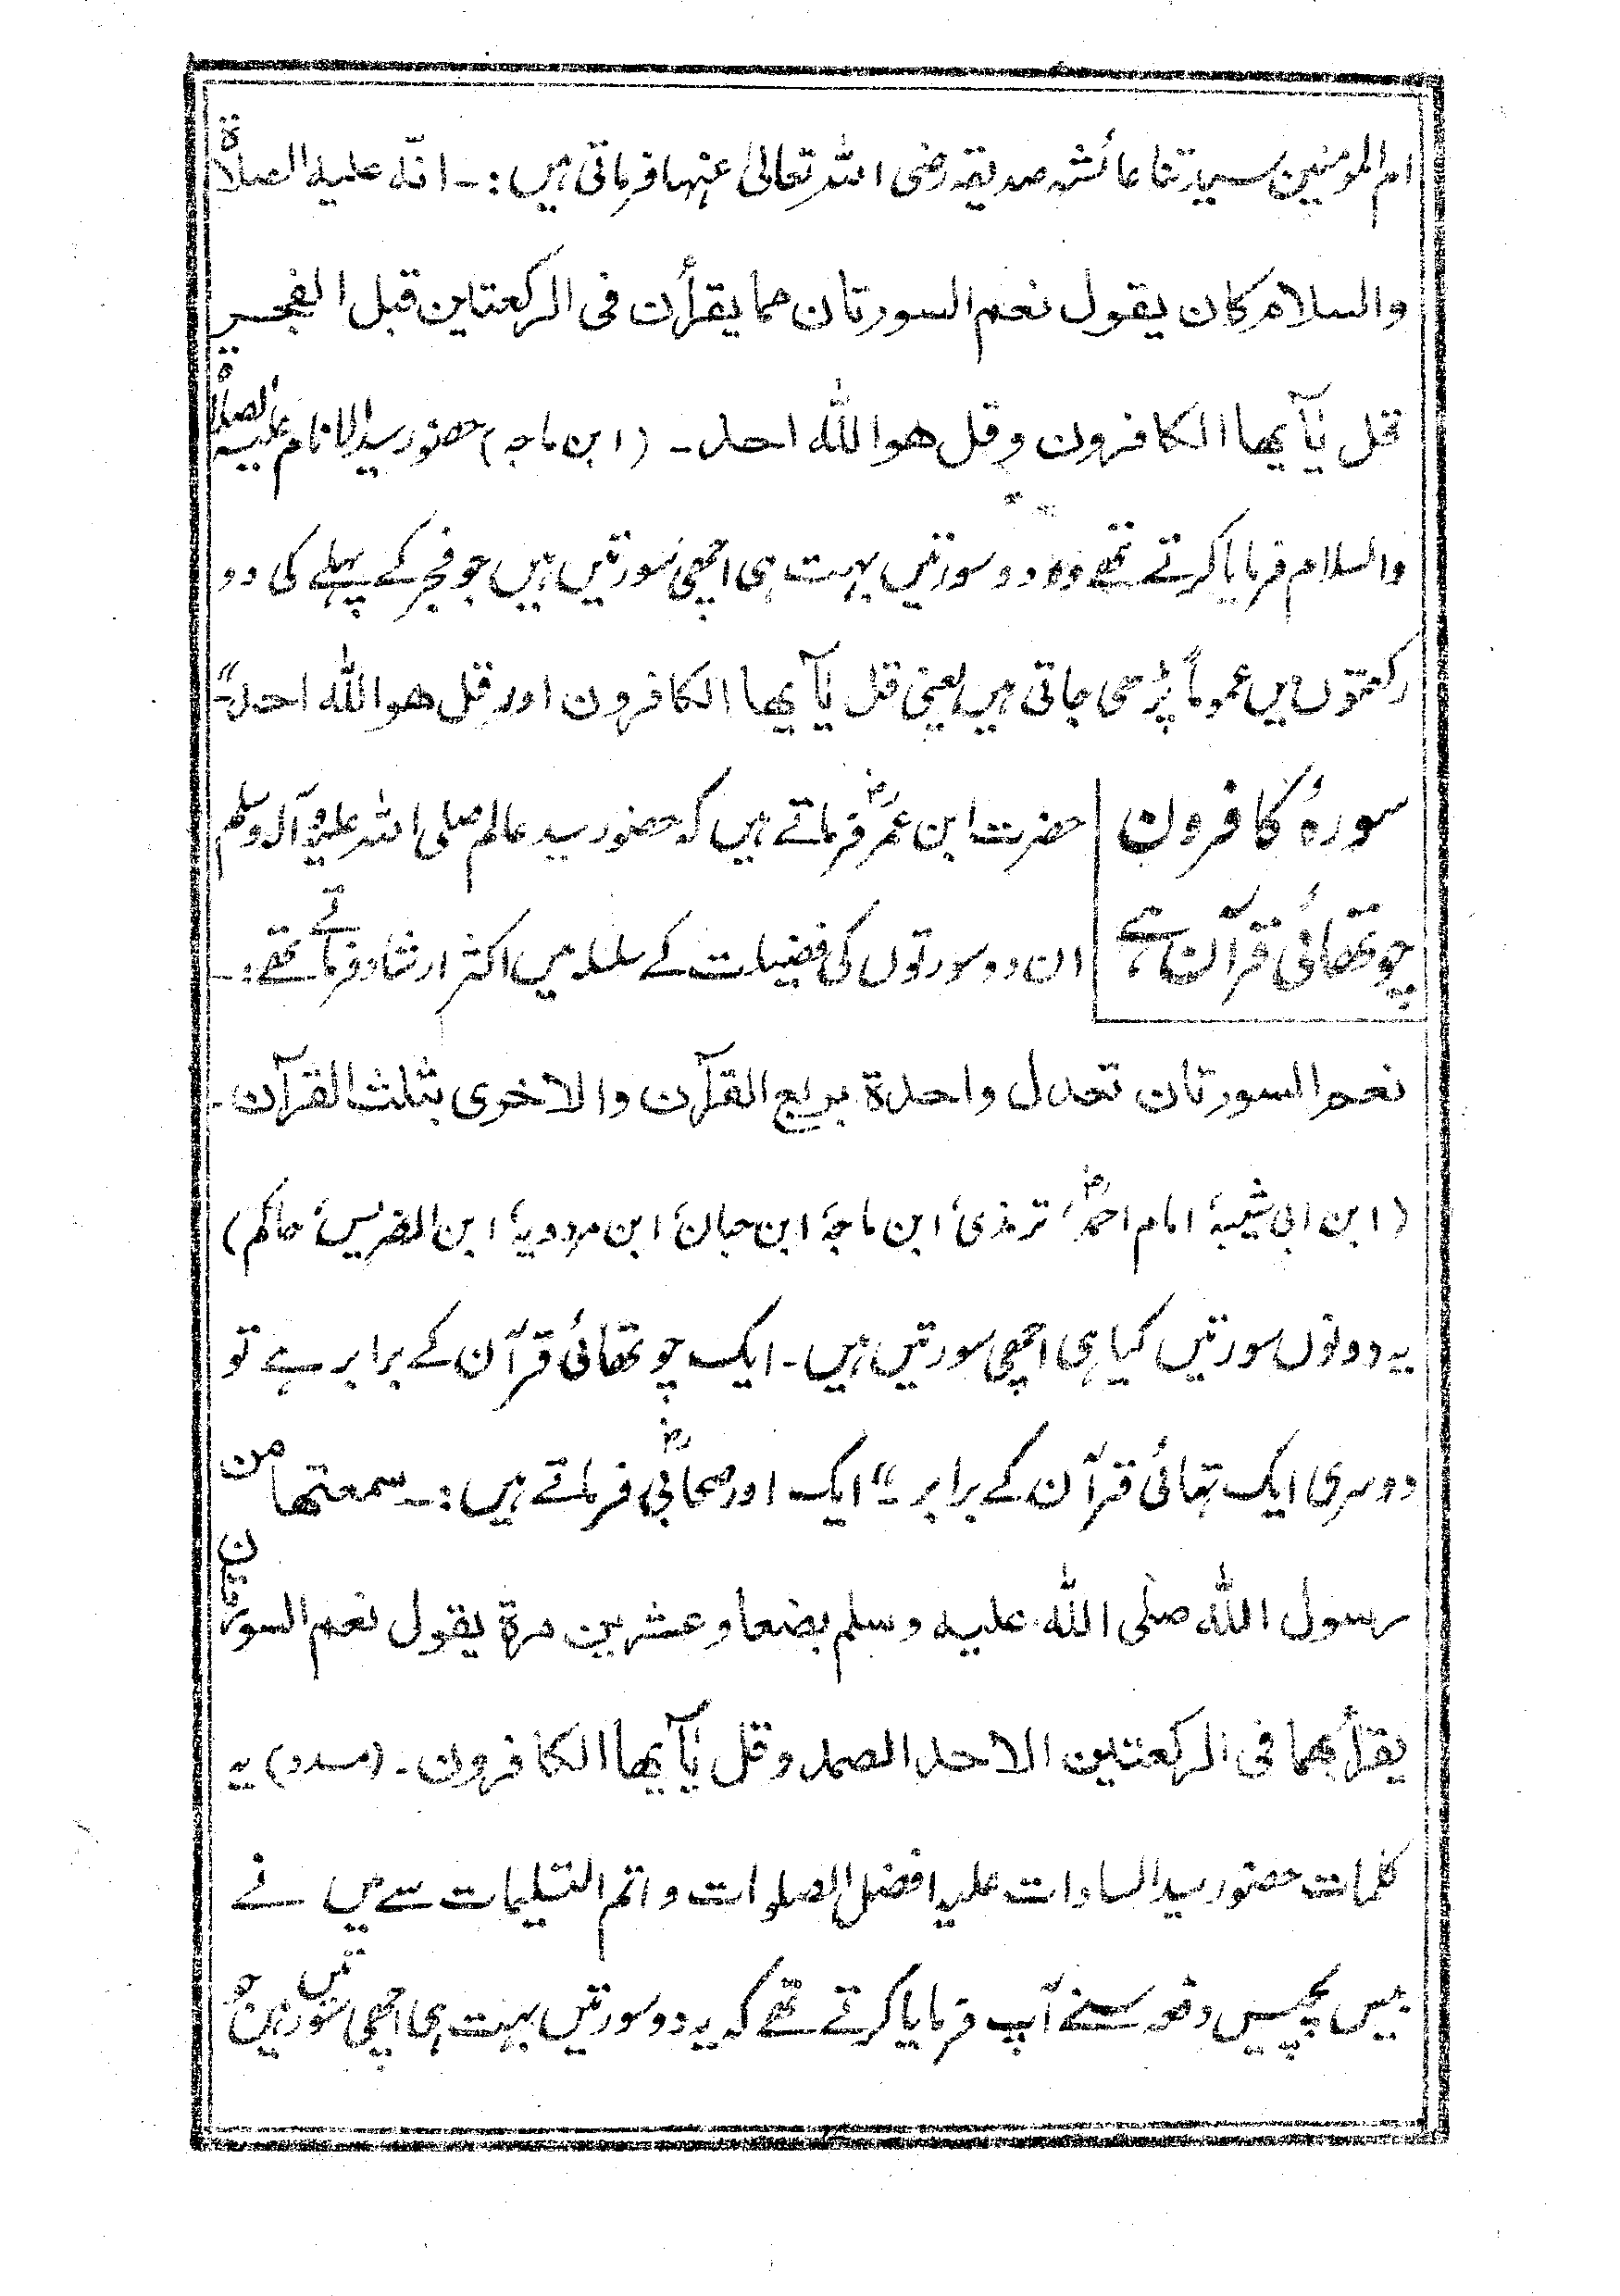 ام المومنین سیدتنا عائشہ صدیقہ رضی اللہ تعالیٰ عنہا فرماتی ہیں :۔ انّہ علیہ الصلاۃ
والسلام کان یقول نعم السورتان مما یقرأن فی الرکعتین قبل الفجر
قل یٰآیھا الکافرون وقل ھو اللہ احد۔ (ابن ماجہ) حضور سید الانام علیہ الصلاۃ
والسلام فرمایا کرتے تھے وہ دو سورتیں بہت ہی اچھی سورتیں ہیں جو فجر کے پہلے کی دو
رکعتوں میں عموماً پڑھی جاتی ہیں یعنی قل یٰآیھا الکافرون اور قل ھو اللہ احد"۔
سورۂ کافرون
چوتھائی قرآن ہے
حضرت ابن عمرؓ فرماتے ہیں کہ حضور سید عالم صلی اللہ علیہ وآلہ وسلم
ان دو سورتوں کی فضیلت کے سلسلہ میں اکثر ارشاد فرماتے تھے :۔
نعم السورتان تعدل واحدۃ بربع القرآن والاخری بثلث القرآن۔
(ابن ابی شیبہ، امام احمدؓ، ترمذی، ابن ماجہ، ابن حبان، ابن مردویہ، ابن الضریس، حاکم)
یہ دونوں سورتیں کیا ہی اچھی سورتیں ہیں۔ ایک چوتھائی قرآن کے برابر ہے تو
دوسری ایک تہائی قرآن کے برابر۔" ایک اور صحابیؓ فرماتے ہیں :۔ سمعتھا من
رسول اللہ صلی اللہ علیہ وسلم بضعا وعشرین مرۃ یقول نعم السورتان
یقرأ بھما فی الرکعتین الاحد الصمد وقل یٰآیھا الکافرون۔ (مسدد) یہ
کلمات حضور سید السادات علیہ افضل الصلوات واتم التسلیمات سے میں نے
بیس پچیس دفعہ سنے آپ فرمایا کرتے تھے کہ یہ دو سورتیں بہت ہی اچھی سورتیں ہیں جو